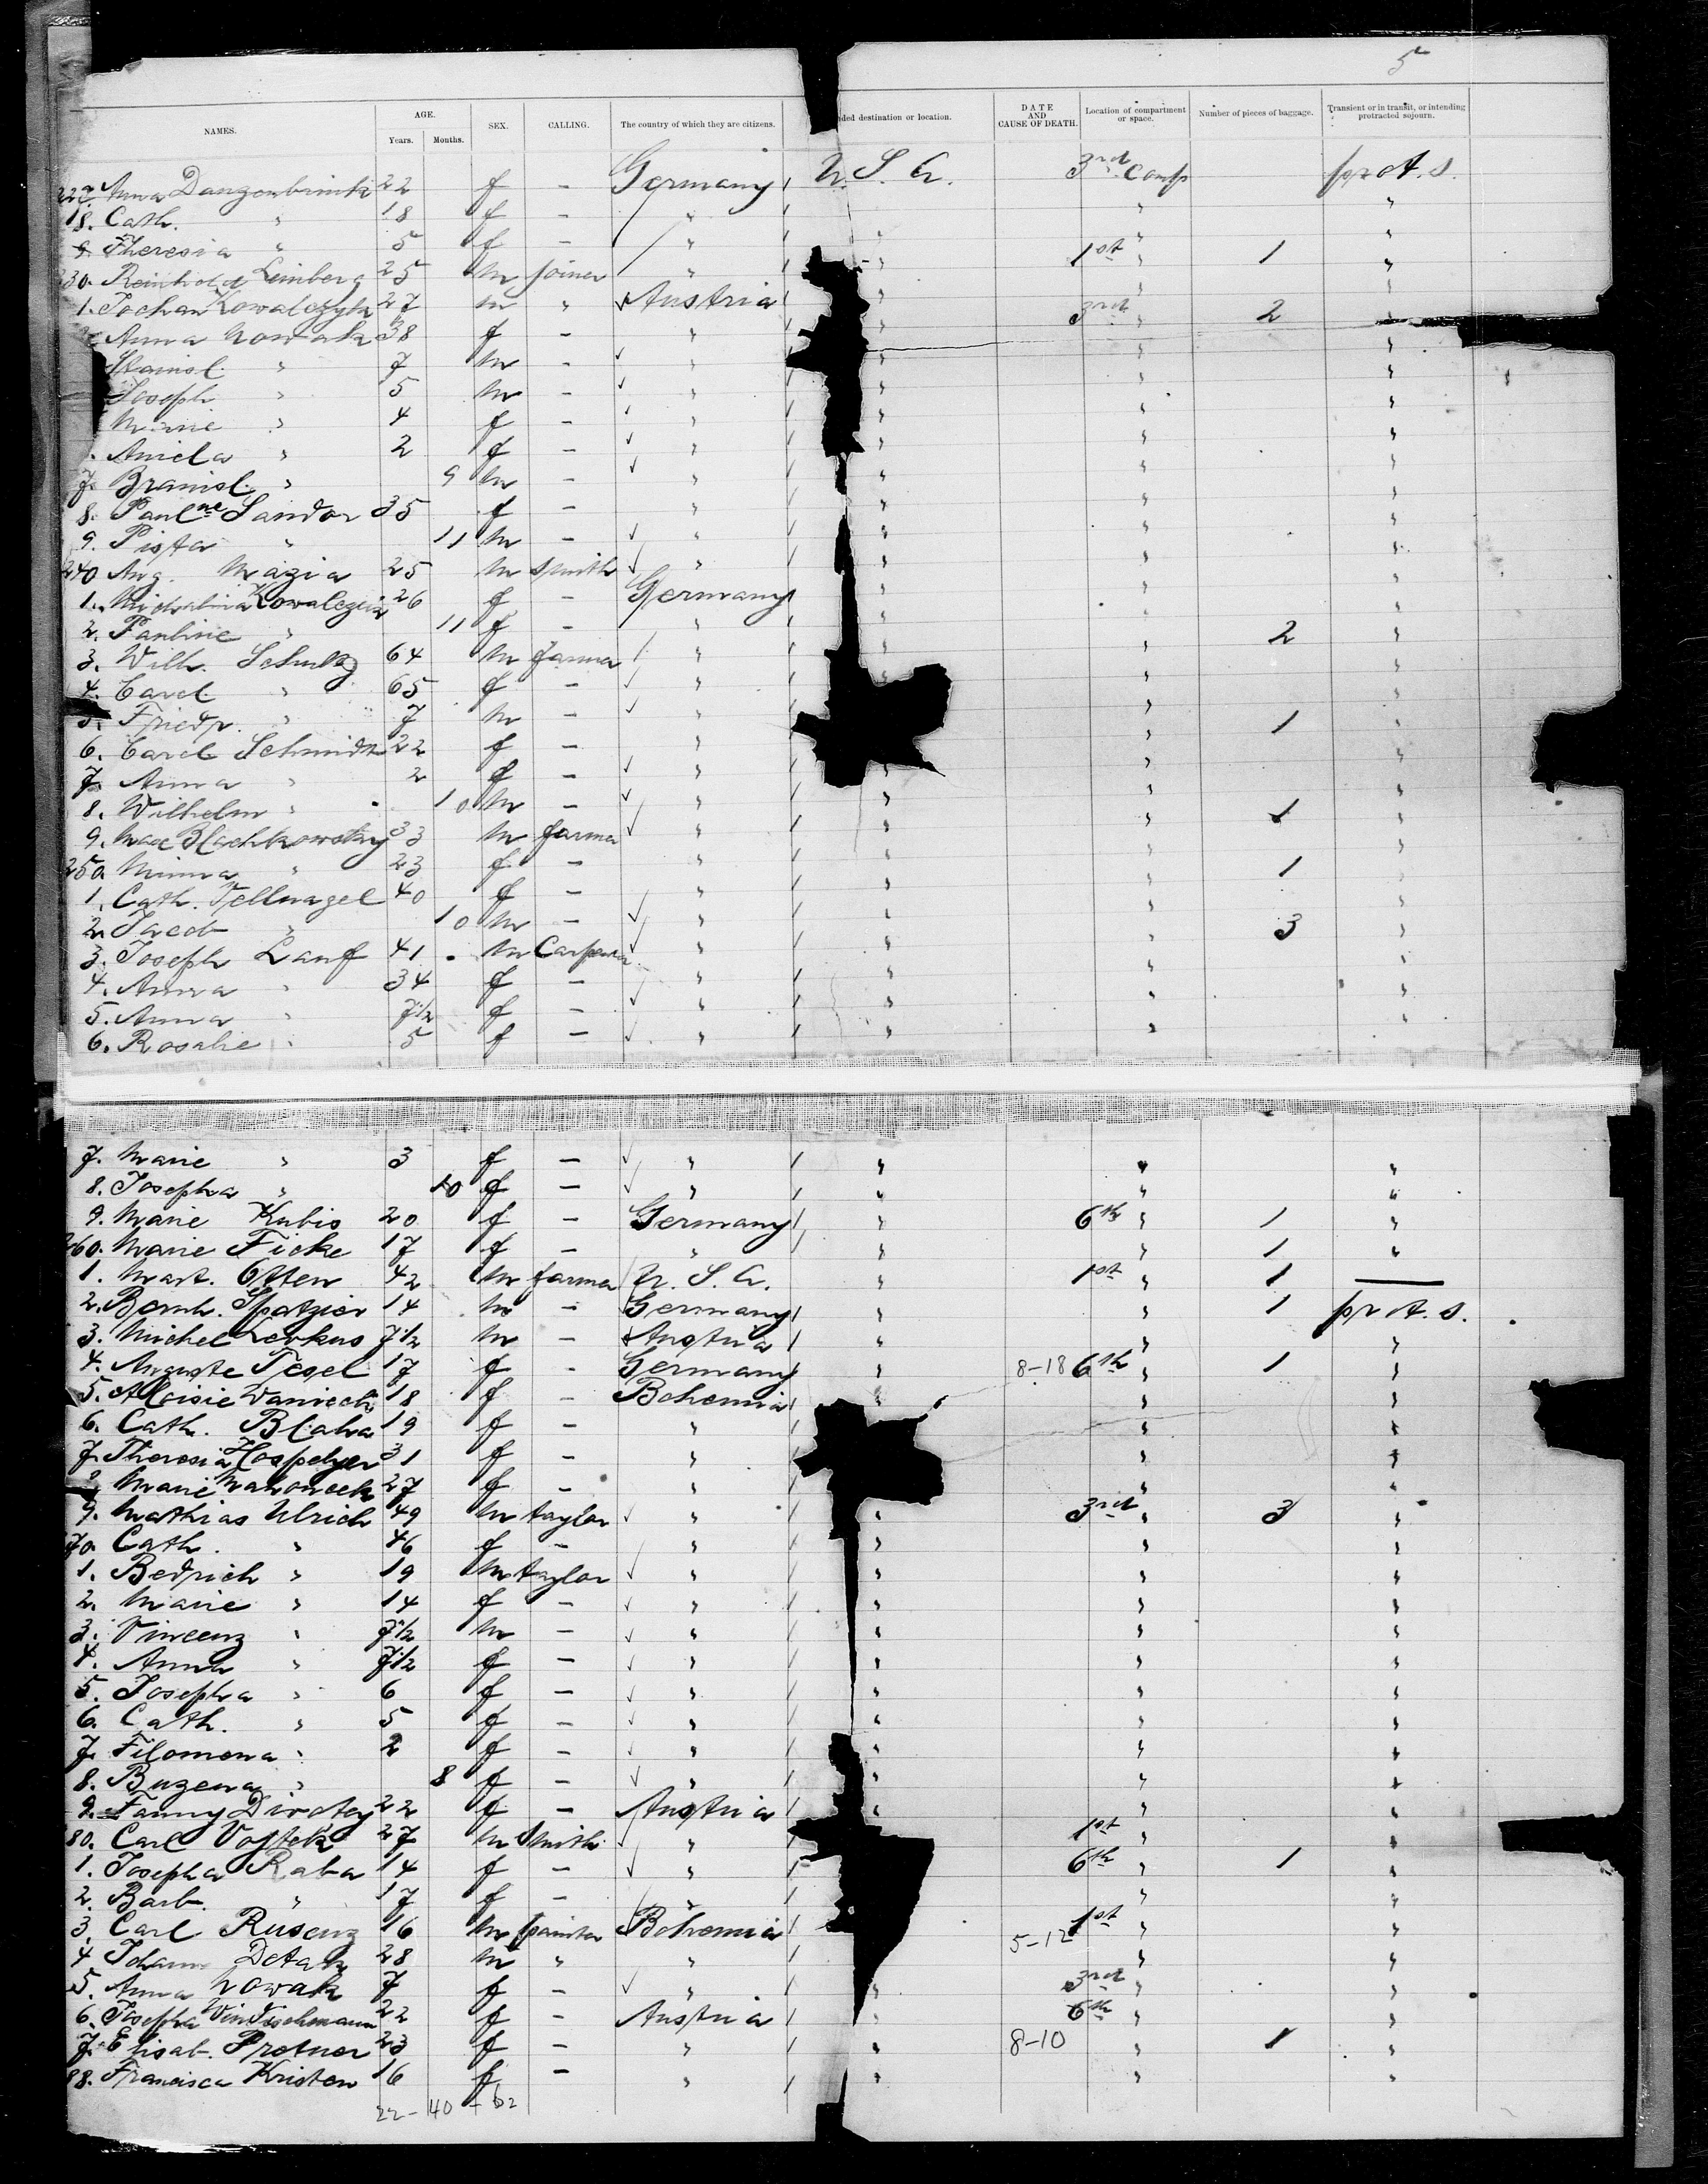 5
NAMES. AGE. Years. Months. SEX. CALLING. The country of which they are citizens. nded destination or location. DATE AND CAUSE OF DEATH. Location of compartment or space. Number of pieces of baggage. Transient or in transit, or intending protracted sojourn.
227. Anna 22 f – Germany U. S. A. 3rd Comp prot. s.
18. Cath. " 18 f – " " " "
9. Theresia " 5 f – " " " "
230. Reinhold Leimberg 25 m joiner " " 1st " 1 "
1. Johan Kowalczyk 27 m " Austria " " "
Anna Nowak 38 f – " " 3rd " 2 "
Stanisl. " 7 m – " " " "
Joseph " 5 m – " " " "
Marie " 4 f – " " " "
Aniela " 2 f – " " " "
7. Branisl. " 9 m – " " " "
8. Paulne Sandor 35 f – " " " "
9. Pista " 11 m – " " " "
240 Aug. Mazia 25 m smith " " " "
1. Michalina 26 f – Germany " " "
2. Pauline " 11 f – " " " "
3. Wilh. Schultz 64 m farmer " " " 2 "
4. Carol. " 65 f – " " " "
5. Friedr. " 7 m – " " " "
6. Carol Schmidt 22 f – " " " 1 "
7. Anna " 2 f – " " " "
8. Wilhelm " 10 m – " " " "
9. Max Blachkowsky 33 m farmer " " " 1 "
250. Minna " 23 f – " " " "
1. Cath. Fellnagel 40 f – " " " 1 "
2. Jacob " 10 m – " " " "
3. Joseph Lauf 41 m Carpenter " " " 3 "
4. Anna " 34 f – " " " "
5. Anna " 7½ f – " " " "
6. Rosalie " 5 f – " " " "
7. Marie " 3 f – " " " "
8. Josepha " 10 f – " " " "
9. Marie Kubis 20 f – Germany " 6th " 1 "
260. Marie Ficke 17 f – " " " 1 "
1. Mart. Otten 42 m farmer U. S. A. " 1st " 1 —
2. Bernh. Spatzier 14 m – Germany " " 1 prot. s.
3. Michel Lerkus 7½ m – Austria " " "
4. Auguste Tesel 17 f – Germany " 8-18 6th " 1 "
5. Aloisie 18 f – Bohemia " " "
6. Cath. Blaha 19 f – " " " "
7. Theresia 31 f – " " " "
8. Marie 27 f – " " " "
9. Mathias Ulrich 49 m taylor " " 3rd " 3 "
70. Cath. " 46 f – " " " "
1. Bedrich " 19 m taylor " " " "
2. Marie " 14 f – " " " "
3. Vincenz " 7½ m – " " " "
4. Anna " 7½ f – " " " "
5. Josepha " 6 f – " " " "
6. Cath. " 5 f – " " " "
7. Filomena " 2 f – " " " "
8. Buzena " 8 f – " " " "
9. Fanny 22 f – Austria " " "
80. Carl Vojtek 27 m Smith " 1st " "
1. Josepha Raba 14 f – " 6th " 1 "
2. Barb. " 17 f – " " "
3. Carl Rusenz 16 m painter Bohemia 1st " "
4 Johann 28 m " " 5-12 " "
5. Anna Nowak 7 f – " " 3rd " "
6. Josepha Windischmann 22 f – Austria " 6th " "
7. Elisab. Protner 23 f – " " 8-10 " 1 "
88. Francisca Kristen 16 f – " " " "
22 – 40 – 62